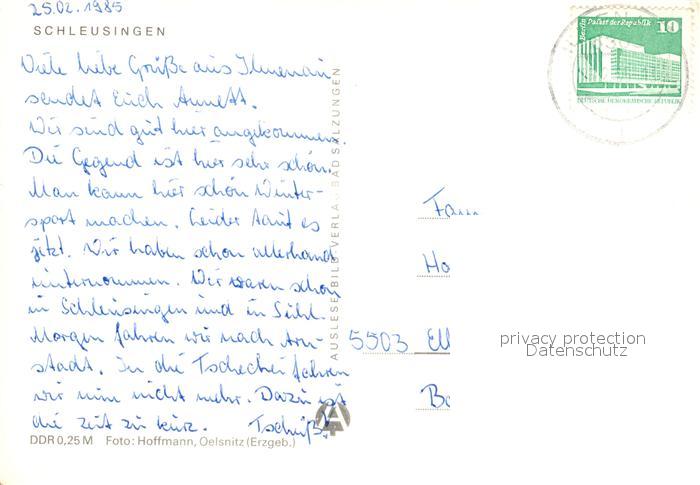 25.02.1985
SCHLEUSINGEN
Viele liebe Grüße aus Ilmenau
sendet Euch Annett.
Wir sind gut hier angekommen.
Die Gegend ist hier sehr schön.
Man kann hier schön Winter-
sport machen. Leider taut es
jetzt. Wir haben schon allerhand
unternommen. Wir waren schon
in Schleusingen und in Suhl.
Morgen fahren wir nach Arn-
stadt. In die Tschechei fahren
wir nun nicht mehr. Dazu ist
die Zeit zu kurz. Tschüß!
DDR 0,25 M Foto: Hoffmann, Oelsnitz (Erzgeb.)
AUSLESE-BILD-VERLAG BAD SALZUNGEN
Berlin Palast der Republik 10
DEUTSCHE DEMOKRATISCHE REPUBLIK
Fa
Ho
5503 Ell
privacy protection
Datenschutz